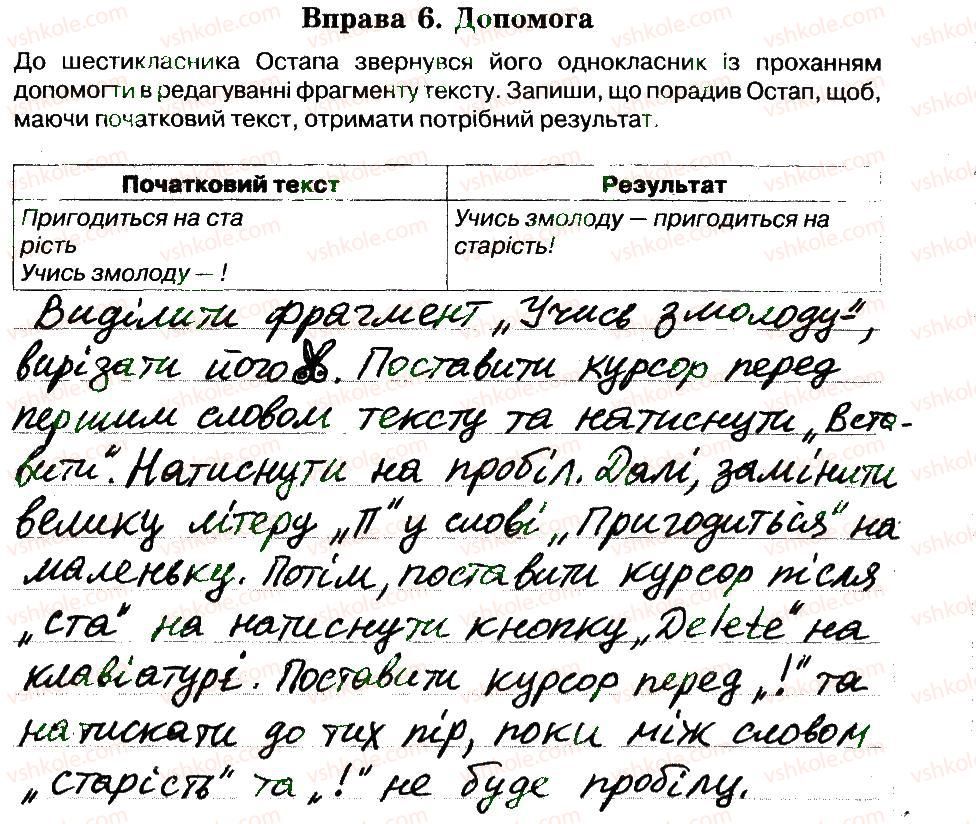 Вправа 6. Допомога
До шестикласника Остапа звернувся його однокласник із проханням
допомогти в редагуванні фрагменту тексту. Запиши, що порадив Остап, щоб,
маючи початковий текст, отримати потрібний результат.
Початковий текст
Результат
Пригодиться на ста
рість
Учись змолоду – !
Учись змолоду – пригодиться на
старість!
Виділити фрагмент „Учись змолоду–",
вирізати його. Поставити курсор перед
першим словом тексту та натиснути „Вста-
вити". Натиснути на пробіл. Далі, замінити
велику літеру „П" у слові „Пригодиться" на
маленьку. Потім, поставити курсор після
„ста" на натиснути кнопку „Delete" на
клавіатурі. Поставити курсор перед „!" та
натискати до тих пір, поки між словом
„старість" та „!" не буде пробілу.